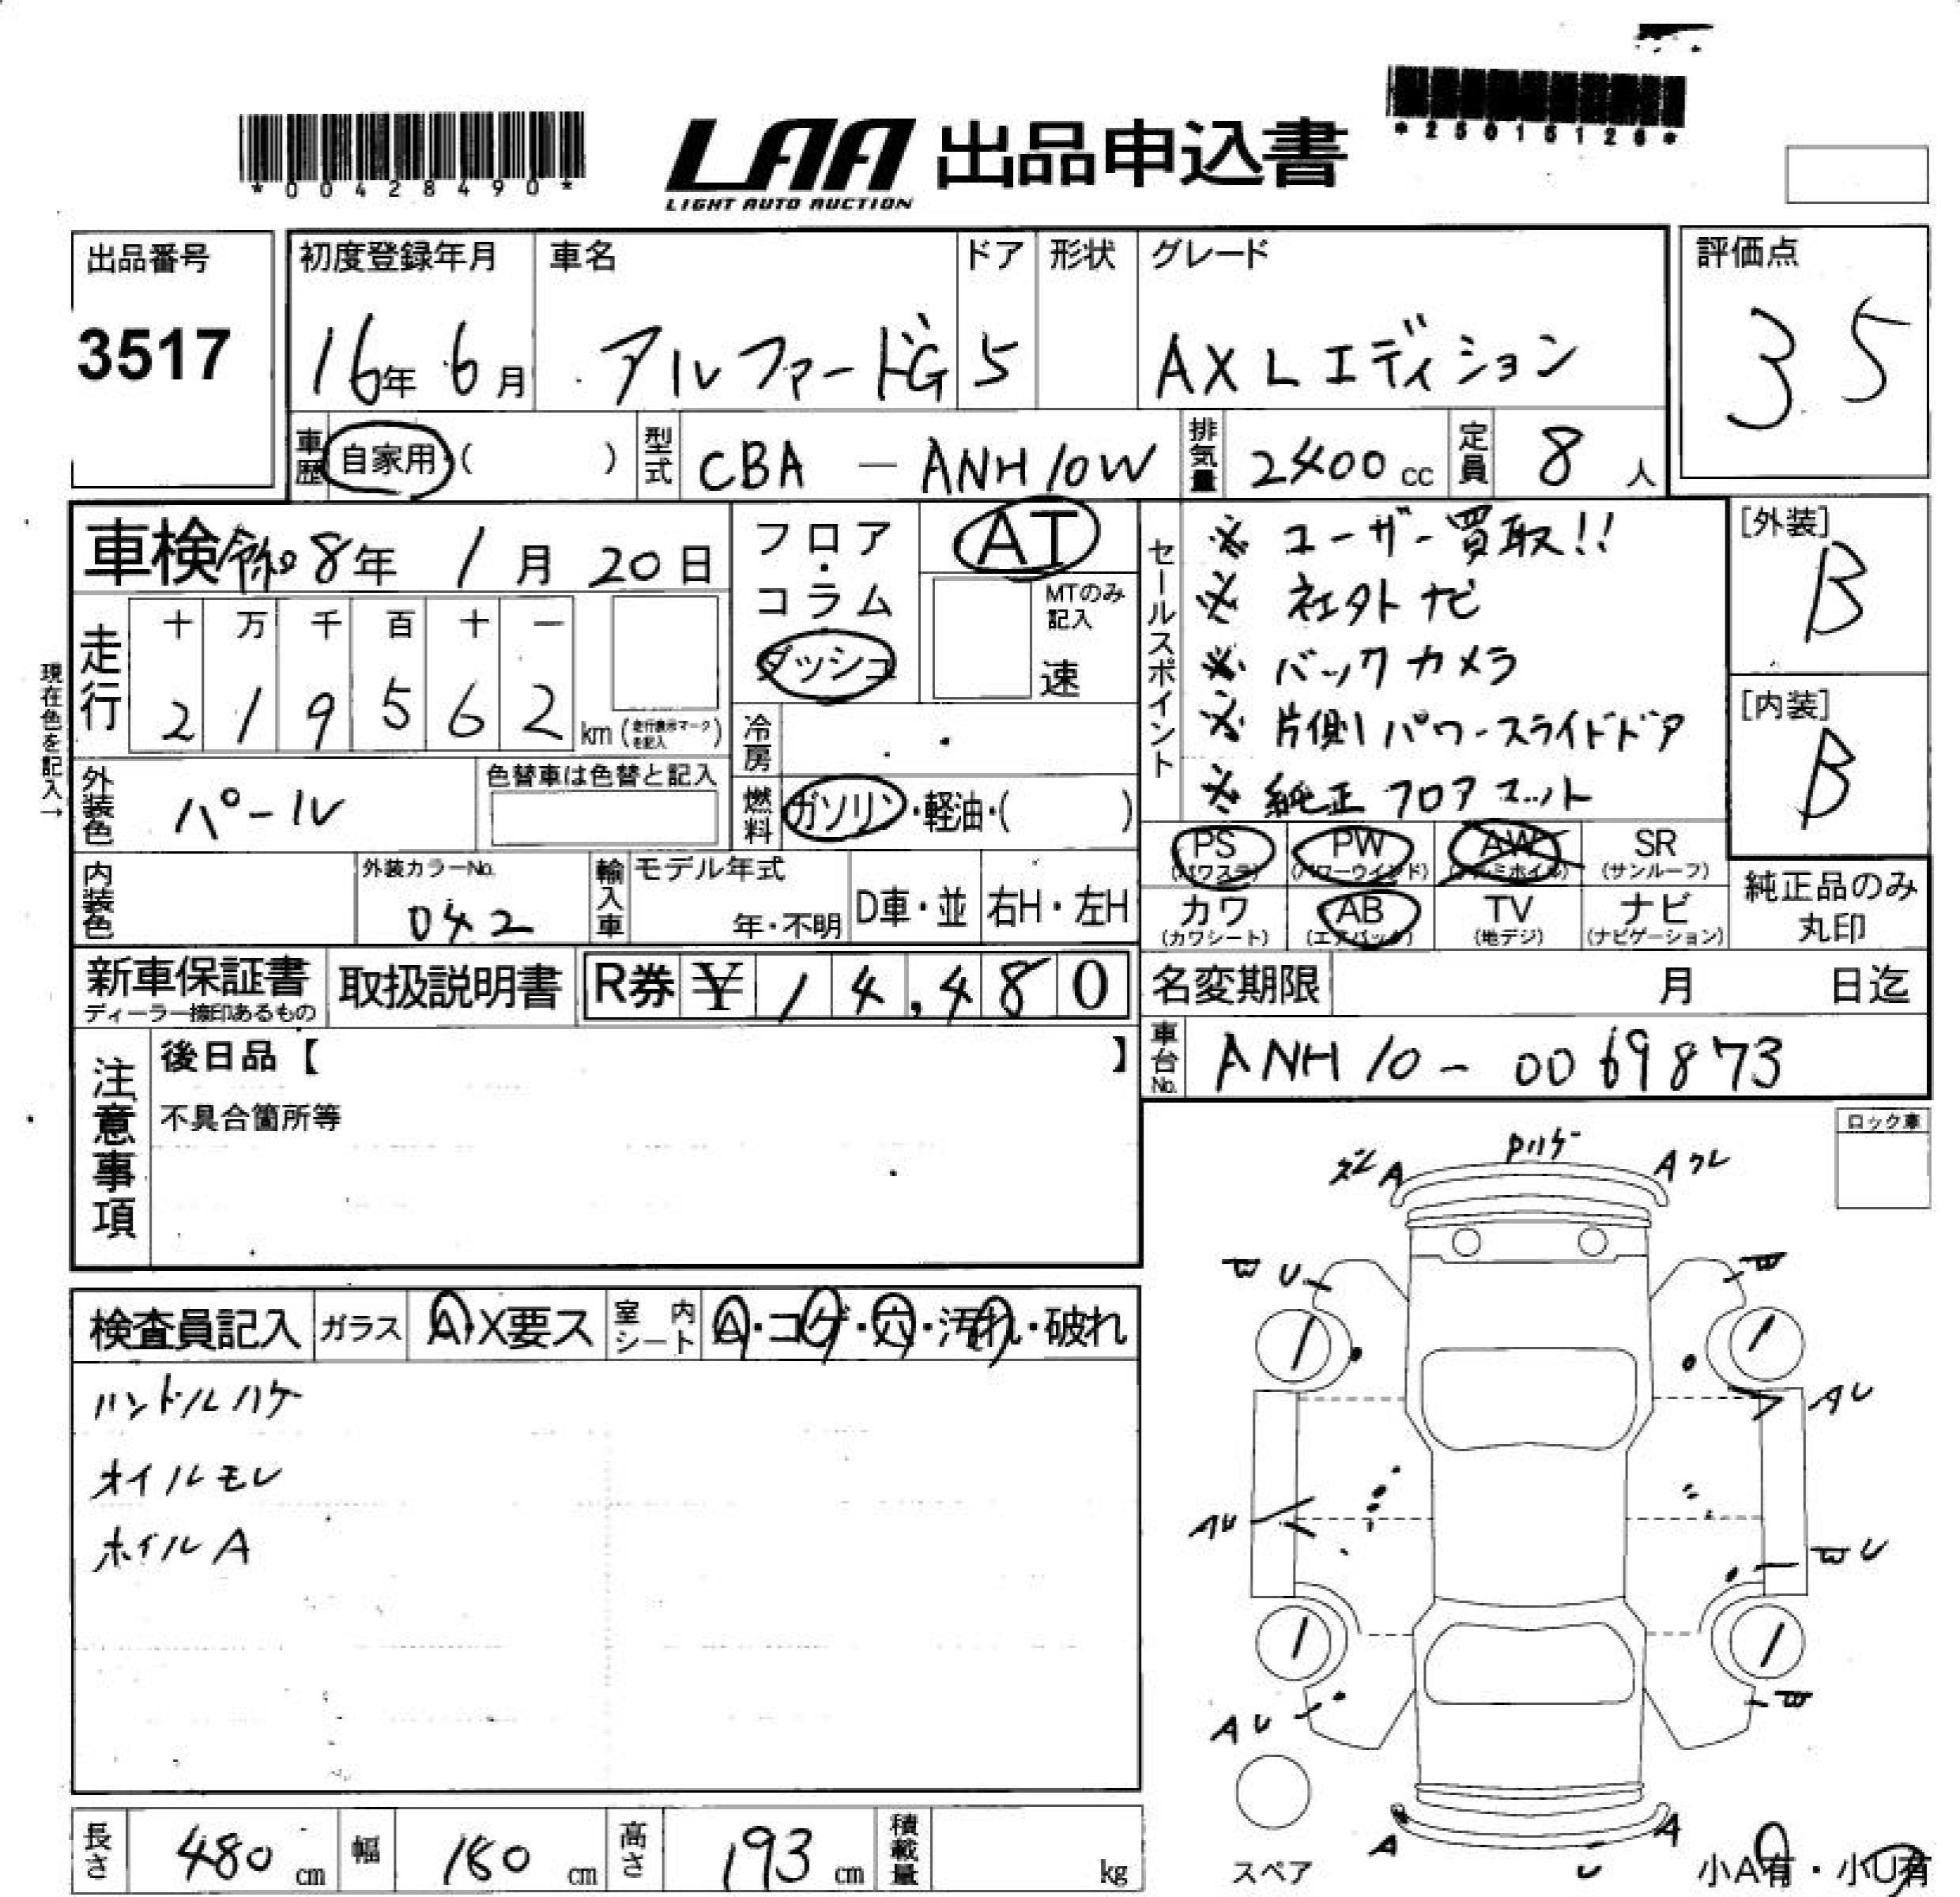 *00428490*
LAA 出品申込書
LIGHT AUTO AUCTION
*25016126*
出品番号
3517
初度登録年月 車名 ドア 形状 グレード
16年 6月 アルファードG 5 AX Lエディション
評価点
3 5
車歴 自家用 ( ) 型式 CBA - ANH10W 排気量 2400 cc 定員 8 人
車検 令和 8年 1月 20日
フロア・コラム
ダッシュ
AT
MTのみ記入
速
走行
十 万 千 百 十 一
2 1 9 5 6 2 km (走行表示マークを記入)
現在色を記入→
外装色 パール
色替車は色替と記入
冷房
燃料 ガソリン・軽油・( )
内装色
外装カラーNo.
042
輸入車 モデル年式
年・不明 D車・並 右H・左H
セールスポイント
※ ユーザー買取!!
※ 社外ナビ
※ バックカメラ
※ 片側パワースライドドア
※ 純正フロアマット
[外装]
B
[内装]
B
PS (パワステ) PW (パワーウィンド) AW (アルミホイル) SR (サンルーフ)
カワ (カワシート) AB (エアバック) TV (地デジ) ナビ (ナビゲーション)
純正品のみ
丸印
新車保証書
ディーラー捺印あるもの
取扱説明書
R券 ¥ 14,480
名変期限 月 日迄
車台No. ANH10-0069873
注意事項
後日品【 】
不具合箇所等
ロック車
検査員記入 ガラス A・X要ス 室内シート A・コゲ・穴・汚れ・破れ
ハンドルハゲ
オイルモレ
ホイルA
Pハゲ
A
A ワレ
U
AU
AU
U
AU
A
U
A
スペア
小A有・小U有
長さ 480 cm 幅 180 cm 高さ 193 cm 積載量 kg